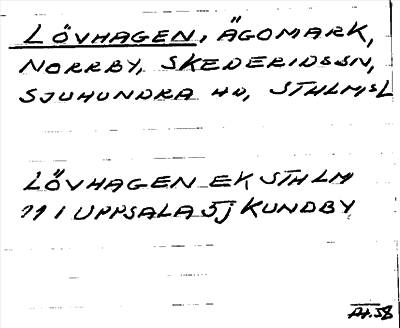 LÖVHAGEN, ÄGOMARK,
NORRBY, SKEDERIDSSN,
SJUHUNDRA HD, STHLMSL
LÖVHAGEN EK STHLM
11 I UPPSALA 5j KUNDBY